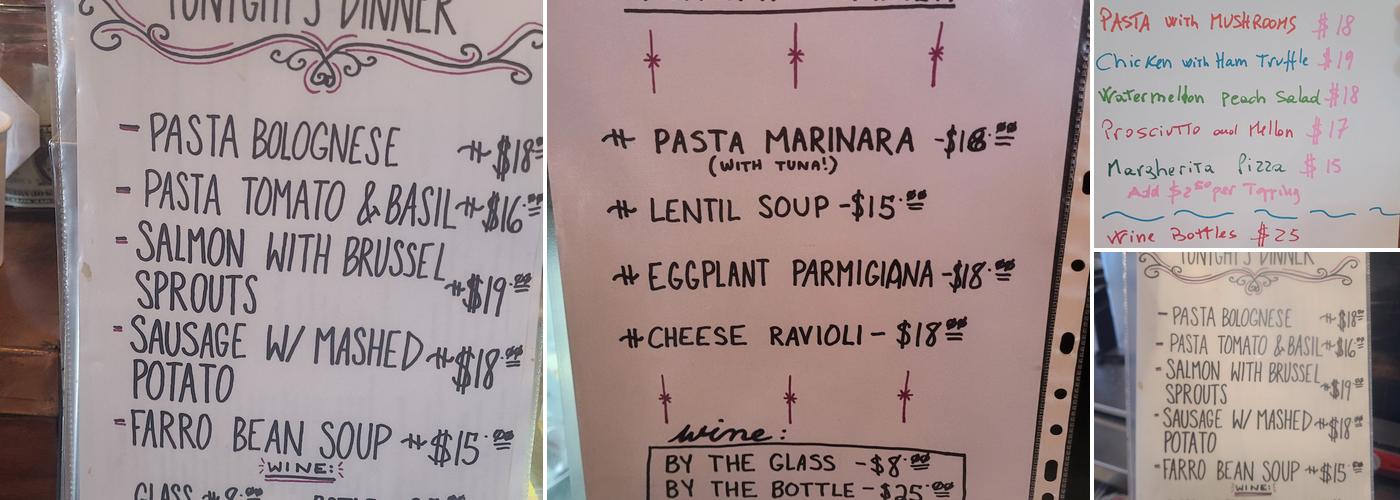 TONIGHT'S DINNER
- PASTA BOLOGNESE $18.00
- PASTA TOMATO & BASIL $16.00
- SALMON WITH BRUSSEL
SPROUTS $19.00
- SAUSAGE W/ MASHED
POTATO $18.00
- FARRO BEAN SOUP $15.00
WINE:
GLASS
PASTA MARINARA - $18.00
(WITH TUNA!)
LENTIL SOUP - $15.00
EGGPLANT PARMIGIANA - $18.00
CHEESE RAVIOLI - $18.00
wine:
BY THE GLASS - $8.00
BY THE BOTTLE - $25.00
PASTA with MUSHROOMS $18
Chicken with Ham Truffle $19
Watermelon Peach Salad $18
Prosciutto and Mellon $17
Margherita Pizza $15
Add $2.50 per Topping
Wine Bottles $25
TONIGHT'S DINNER
- PASTA BOLOGNESE $18.00
- PASTA TOMATO & BASIL $16.00
- SALMON WITH BRUSSEL
SPROUTS $19.00
- SAUSAGE W/ MASHED
POTATO $18.00
- FARRO BEAN SOUP $15.00
WINE: